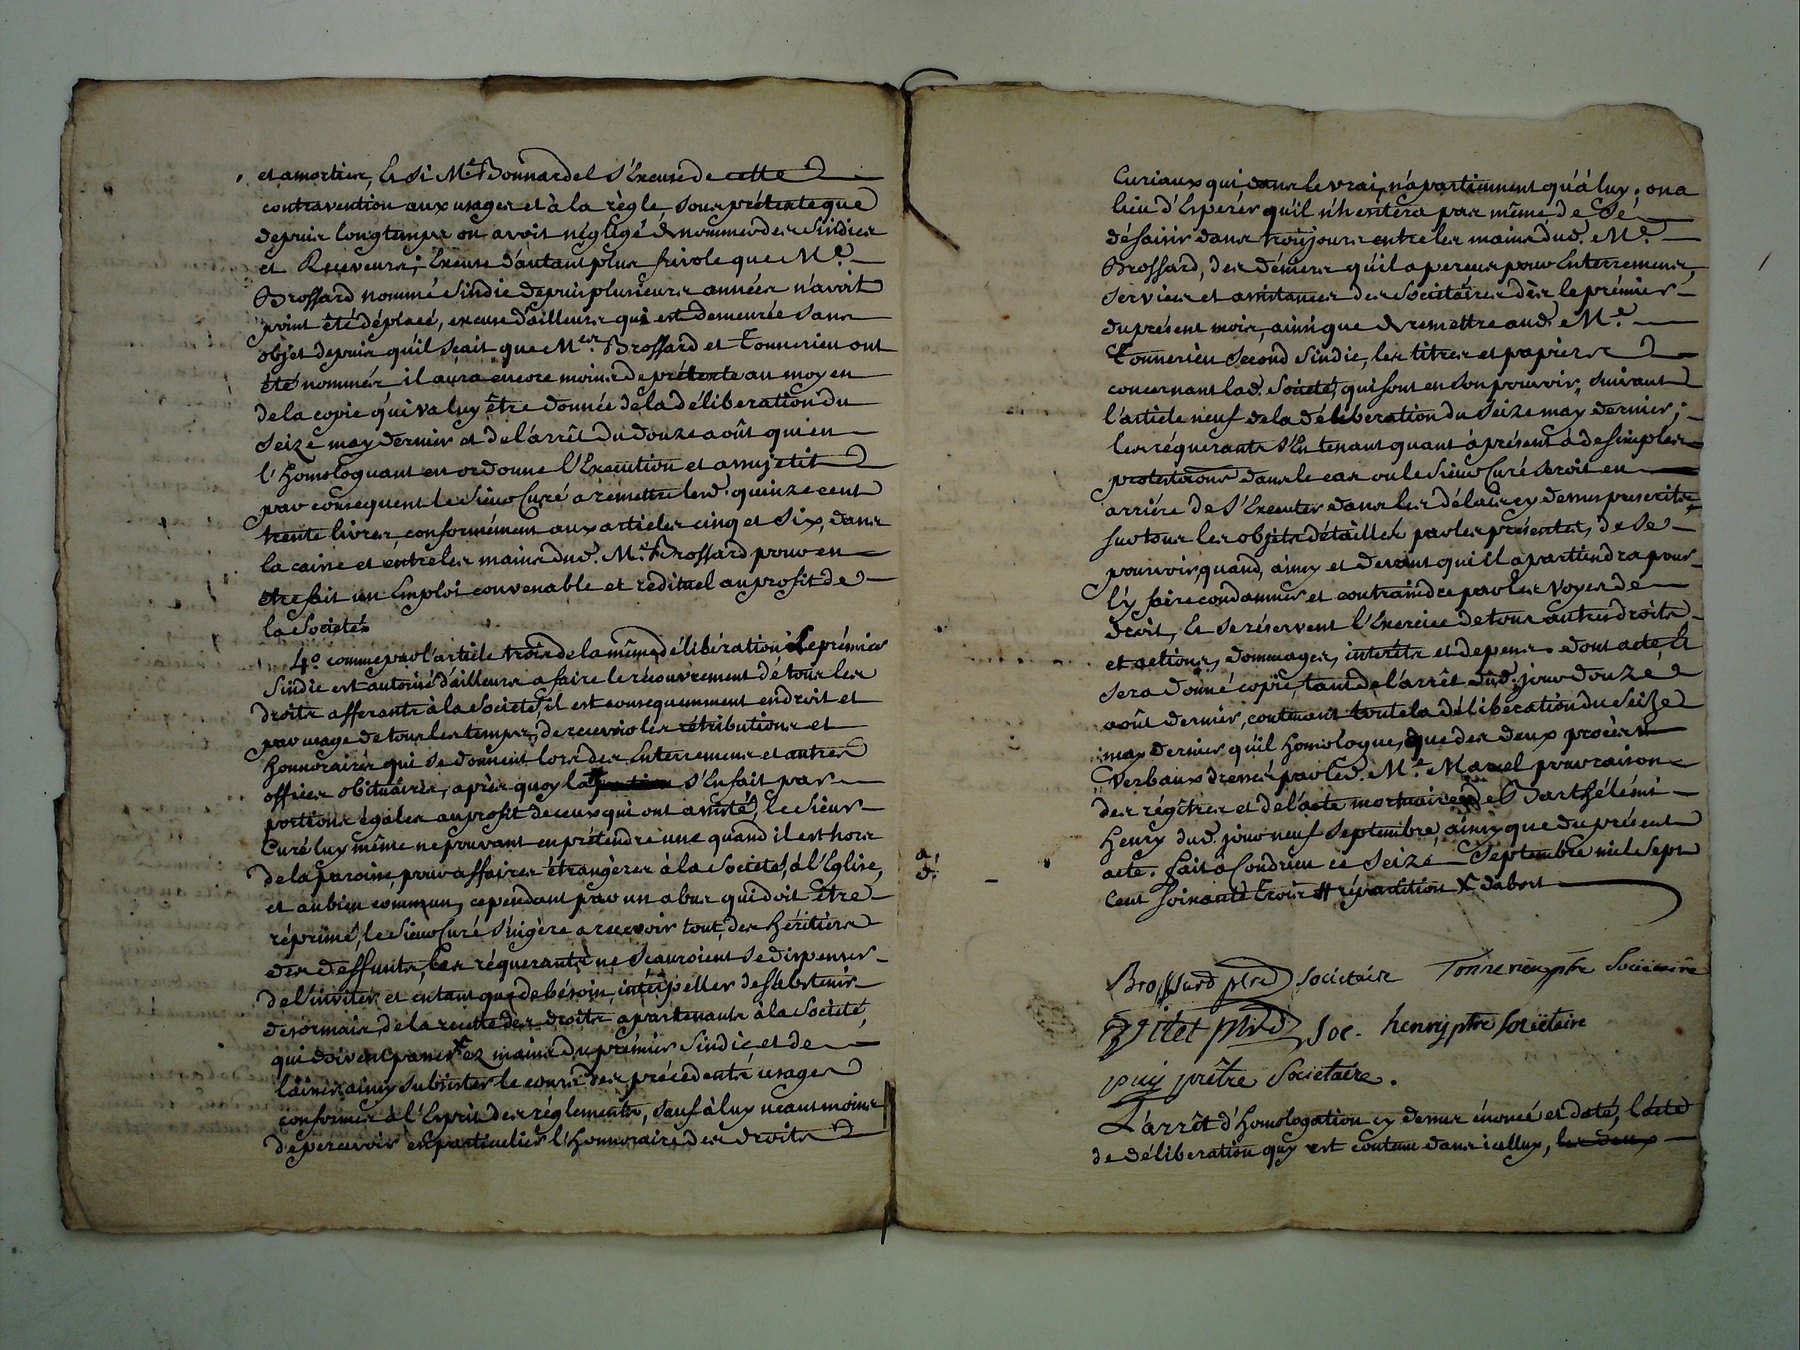 et amortier, Et Si Me. Bonnardel S'Excuse de cette
contravention aux usages et à la règle sous prétexte que
depuis longtemps on avoit négligé de nommer des Sindics
et Receveurs; Excuse d'autant plus frivole que Me.
Brossard nommé Sindic depuis plusieurs années n'avoit
point été déplacé, excuse d'ailleurs qui est demeurée sans
objet depuis qu'il sçait que Mers. Brossard et Tonnerieu ont
été nommés il aura encore moins de prétexte au moyen
de la copie qui va luy être donnée de la déliberation du
Seize may dernier et de l'arrêt du douze août qui en
l'Homologuant en ordonne l'Execution et assujetit
par consequent le Sieur Curé a remettre lesd. quinze cent
trente livres conformément aux articles cinq et Six, dans
la caisse et entre les mains dud. Me. Brossard pour en
être fait un Emploi convenable et redituel au profit de
la Societé.
4°. comme par l'article trois de la même délibération Le prémier
Sindic est autorisé d'ailleurs a faire le récouvrement de tous les
droits afferants à la Societé il est consequemment en droit et
par usage de tous les temps, de recevoir les rétributions et
Honnoraires qui se donnent lors des Enterremens et autres
offices obituaires, après quoy la # S'En fait par
portions égales au profit de ceux qui ont assisté, le Sieur
Curé luy même ne pouvant en prétendre une quand il est hors
de la paroisse, pour affaires étrangères à la Societé, à l'Eglise,
et au bien commun, cependant par un abus qui doit être
réprimé, le Sieur Curé S'ingère a recevoir tout, des Héritiers
des deffunts, Les réquerants ne Scauroient se dispenser
de l'inviter et entant que de bésoin, interpeller de S'abstenir
desormais de la recette des droits apartenants à la Societé,
qui doivent passer X ez mains du prémier Sindic et de
laisser ainsy subsister le cours des précédents usages
conformes à l'Esprit des réglements, Sauf à luy neantmoins
de percevoir en particulier l'Honnoraire des droits
Curiaux qui dans le vrai, n'apartiennent qu'à luy; on a
lieu d'Espérer qu'il n'hesitera pas même de Se
désaisir dans trois jours entre les mains dud. Me.
Brossard, des déniers qu'il a perçus pour Enterremens,
Services et assistances des Societaires dès le prémier
du présent mois, ainsi que de remettre aud. Me.
Tonnerieu Second Sindic, les titres et papiers
concernant lad. Societé, qui sont en Son pouvoir, Suivant
l'article neuf de la déliberation du Seize may dernier;
les réquerants S'En tenant quant à présent à de Simples
protestations dans le cas ou le Sieur Curé Seroit en
arriere de S'Executer dans les délais cy dessus prescrits
sur tous les objets détaillés par les présentes, de Se
pourvoir, quand, ainsy et devant qui il apartiendra pour
l'y faire condamner et contraindre par les voyes de
droit, Et se réservent l'Exercice de tous autres droits
et actions, dommages, interêts et depens. dont acte, Et
Sera donné copie, tant de l'arrêt dud. jour douze
août dernier, contenant toute la délibération du Seize
may dernier qu'il homologue, que des deux procès
verbaux dressés par led. Me. Marcel pour raison
des régitres et de l'acte mortuaire de Barthélémi
Henry dud. jour neuf Septembre, ainsy que du présent
acte. fait a Condrieu ce Seize Septembre mil Sept
Cent Soixante trois # répartition X d'abort
Brossard ptre Societaire Tonnerieu ptre Societaire
Soc. henry ptre Societaire
puy prêtre Societaire.
L'arrêt d'homologation cy dessus énoncé et daté, l'acte
de déliberation quy est contenu dans icelluy, les deux